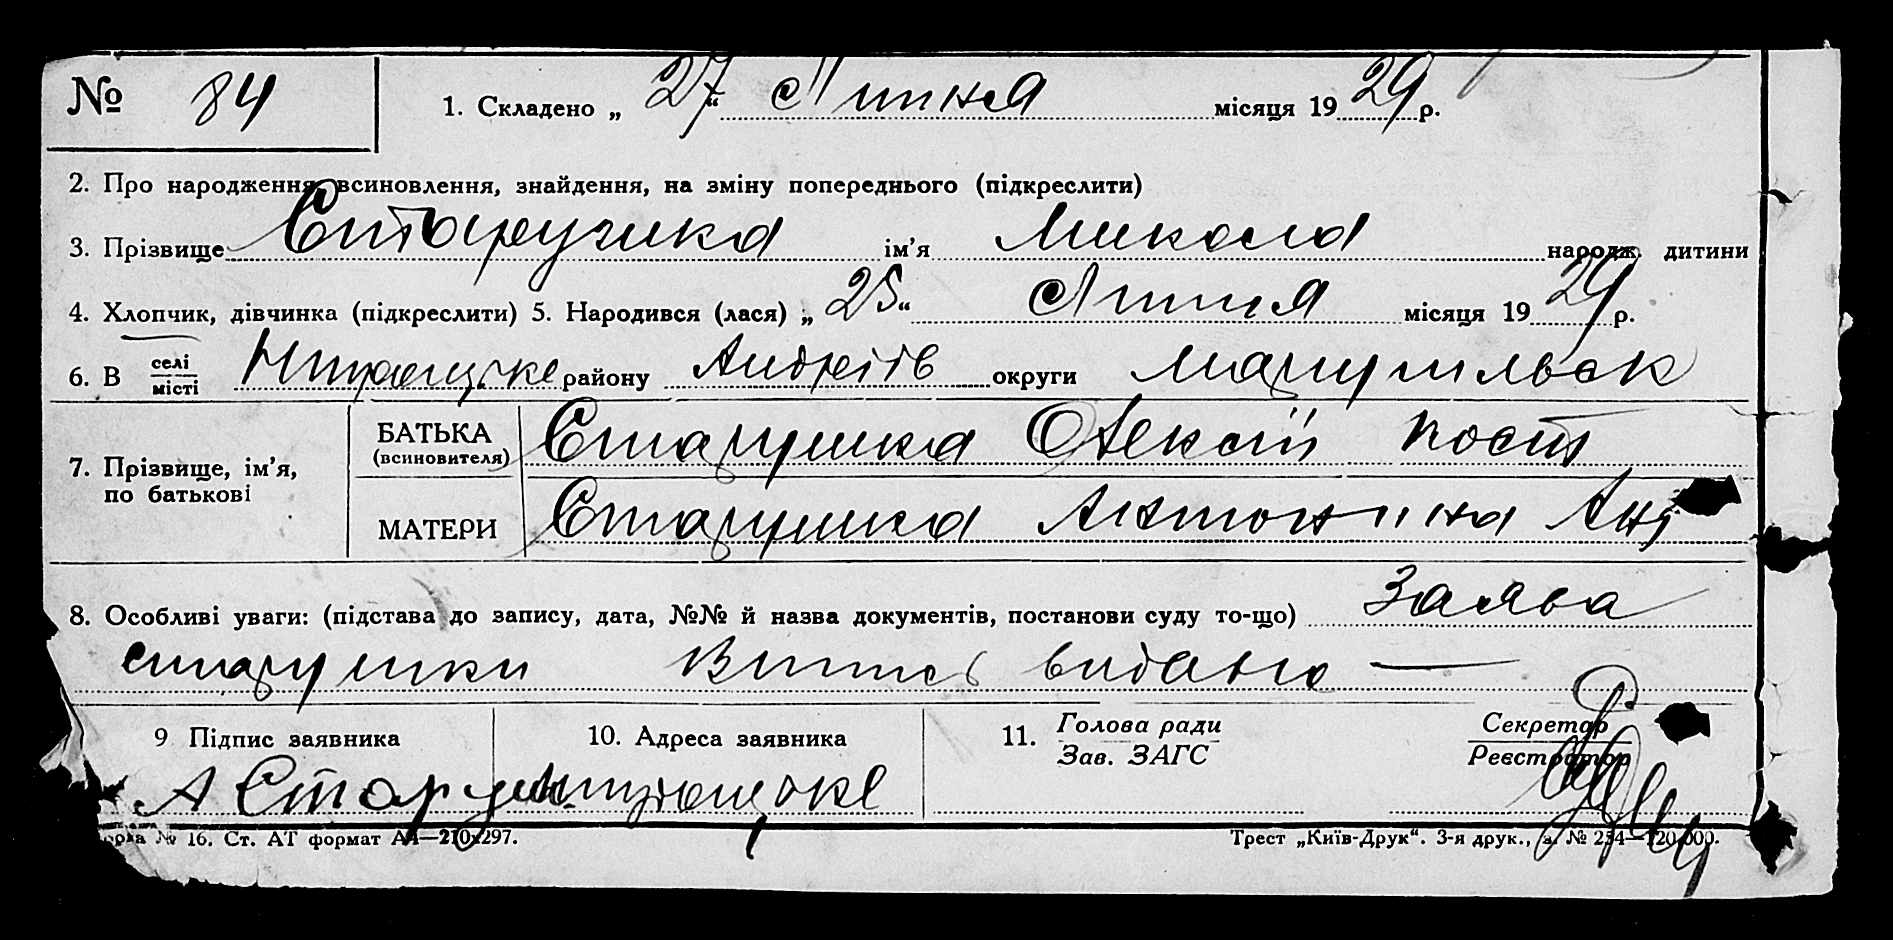 № 84 1. Складено „ 27 “ Липня місяця 1929 р.
2. Про народження, всиновлення, знайдення, на зміну попереднього (підкреслити)
3. Прізвище Старушка ім’я Микола народж. дитини
4. Хлопчик, дівчинка (підкреслити) 5. Народився (лася) „ 25 “ Липня місяця 1929 р.
6. В селі району Андріїв округи Маріупільск
місті
БАТЬКА Старушка Олексій Кост
(всиновителя)
7. Прізвище, ім’я,
по батькові
МАТЕРИ Старушка Антонина Анд
8. Особливі уваги: (підстава до запису, дата, №№ й назва документів, постанови суду то-що) Заява
старушки Випись видано —
9 Підпис заявника 10. Адреса заявника 11. Голова ради Секретар
Зав. ЗАГС Реєстратор
А Старушк
№ 16. Ст. АТ формат А4—210х297. Трест „Київ-Друк“. 3-я друк., з. № 254—120.000.